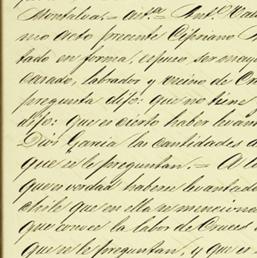 Montalvo.= aus.ª = Ant.º Vald
mo acto presente Cipriano
tado en forma, espuso, ser mayo
casado, labrador y vecino de Cru
pregunta dijo: que no tiene
dijo: que es cierto haber levan
Dios Garcia las cantidades d
que se le preguntan.= A la
que es verdad haberse levantado
chile que en ella se menciona
que conoce la labor de Cruces
que se le preguntan, y que es